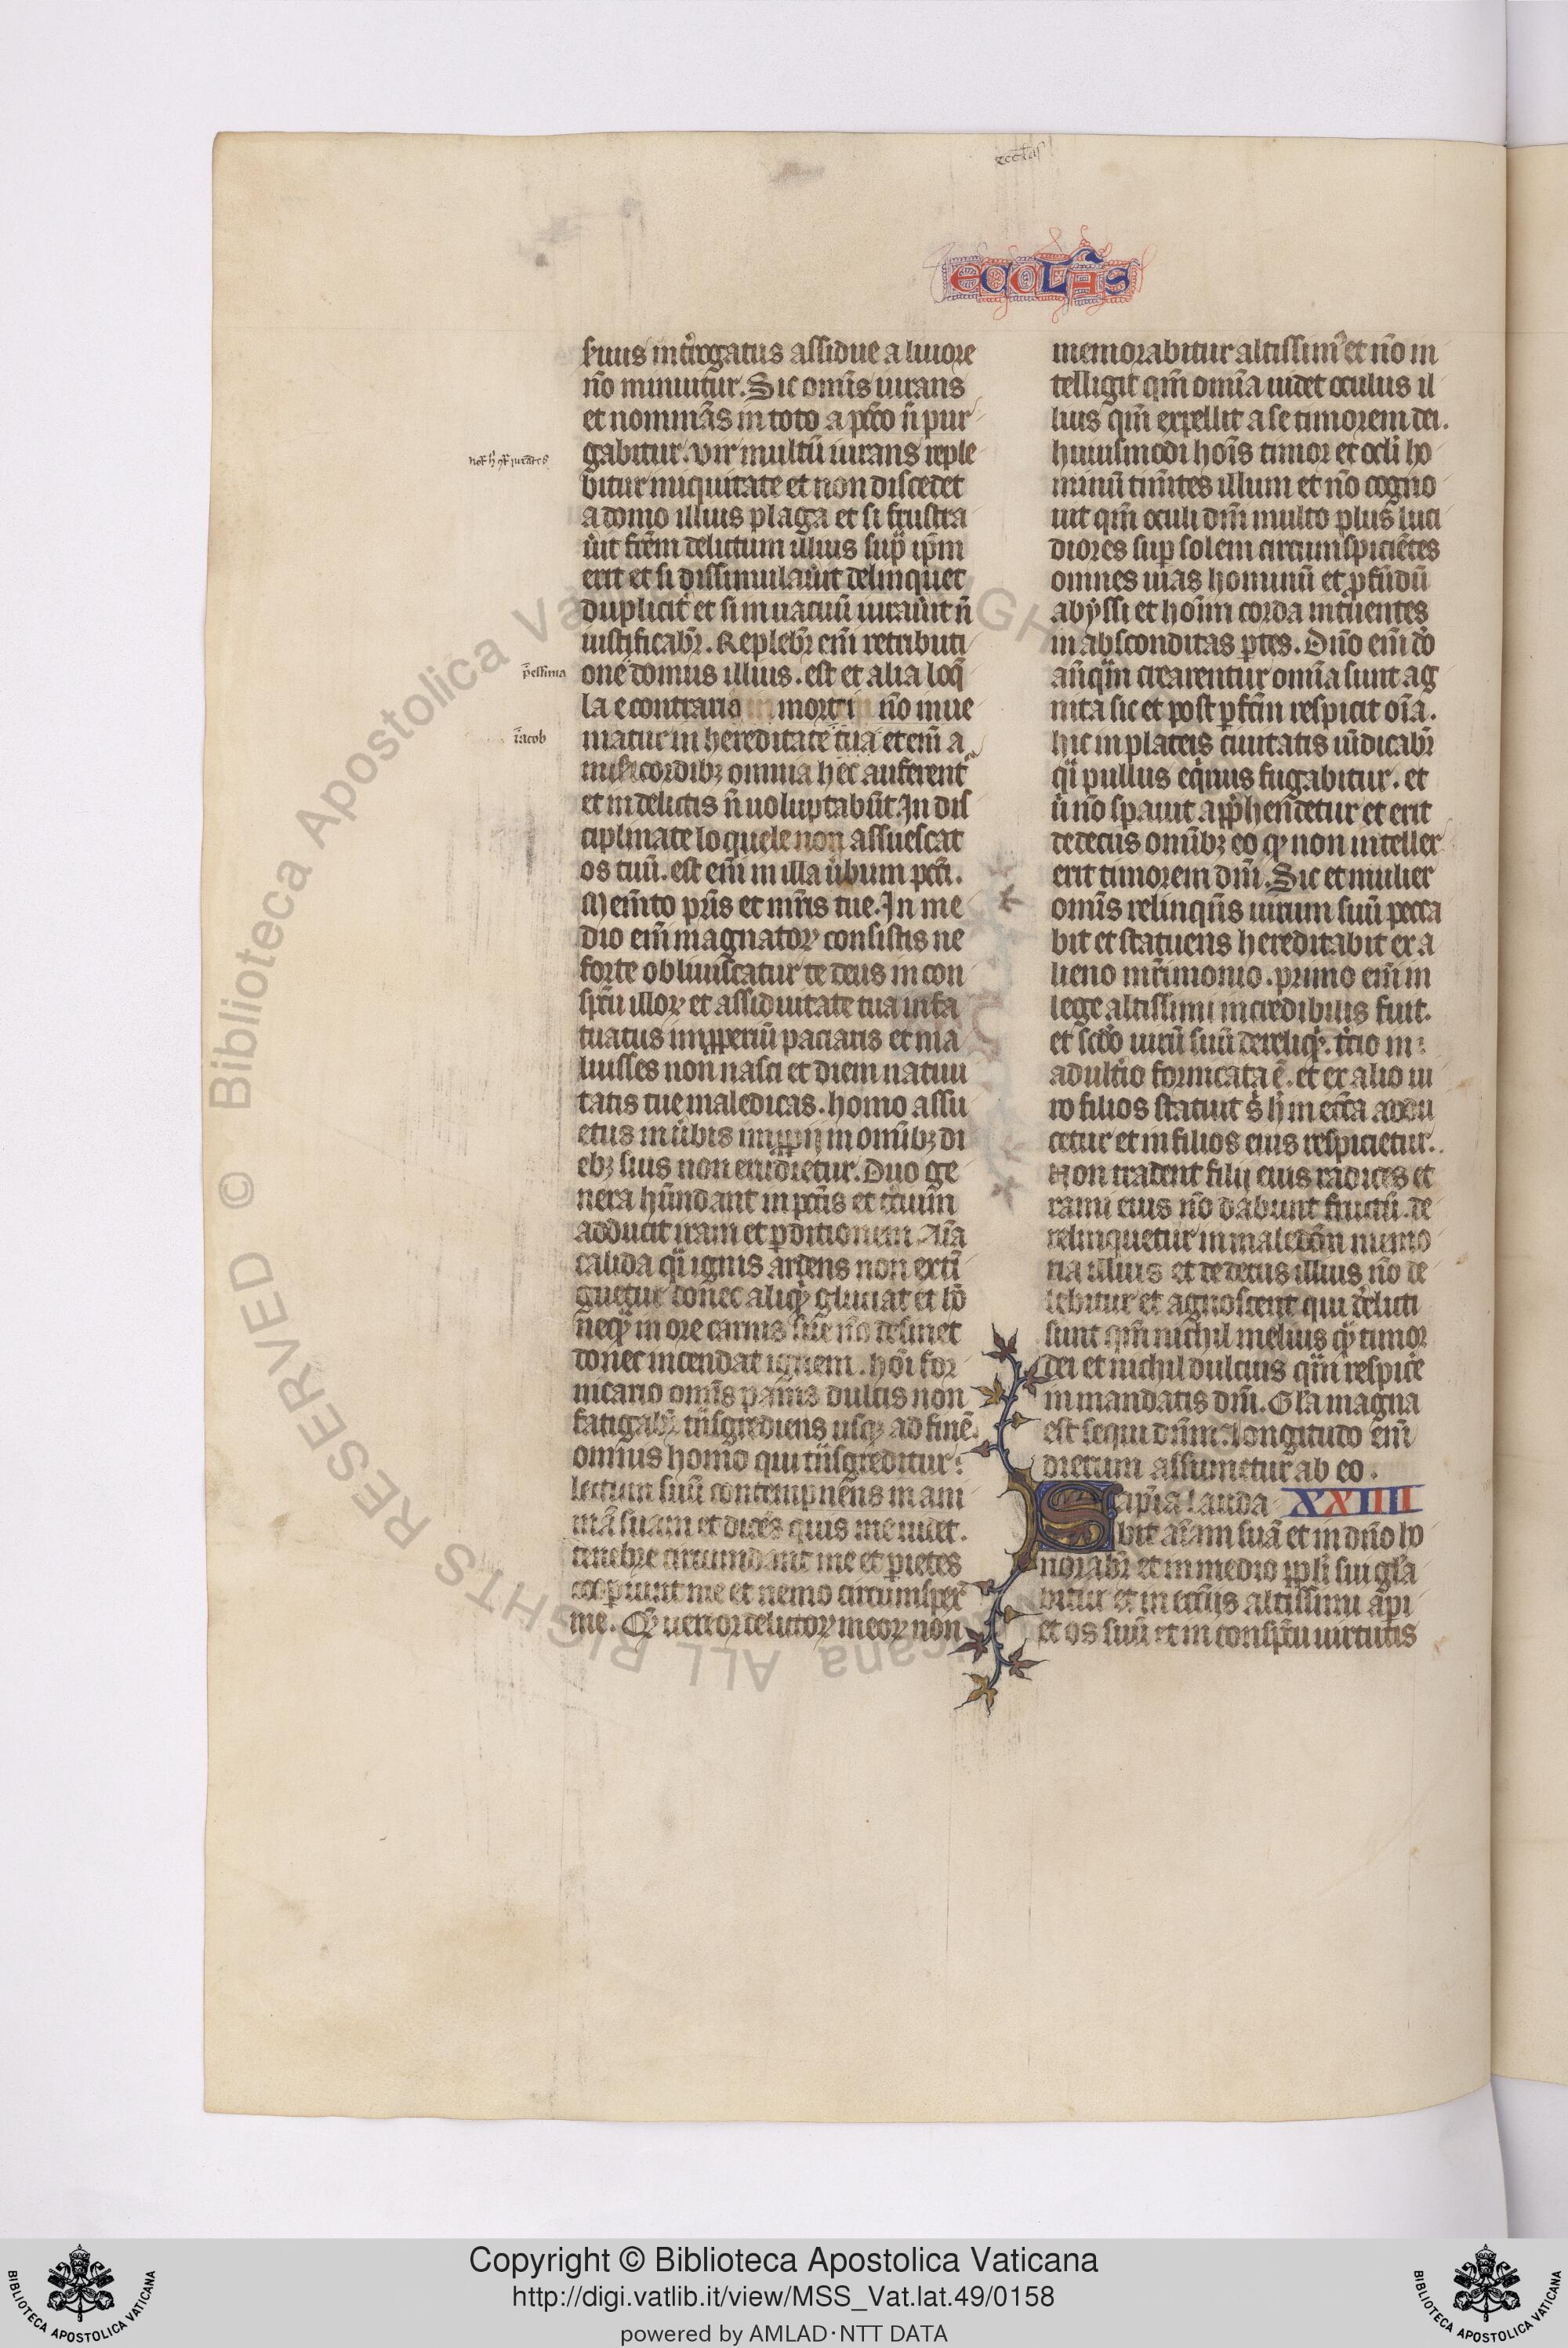 eccl'as
ECCL'AS
s̾uus int̾rogatus assidue a liuore
nõ minuitur. Sic omĩs iurans
et nominãs in toto a pcc̃o ñ pur
gabitur. vir multũ iurans reple
bitur iniquitate et non discedet
a domo illius plaga et si frustra
ũit frẽm delictum illius sup̃ ip̃m
erit et si dissimulaũit delinquet
duplicit̾ et si in uacuũ iuraũit ñ
iustificabr̃. Replebr̃ eñi retributi
pessima
onẽ domus illius. est et alia loq̃
la e contrario morti nõ inue
iacob
niatur in hereditate iacob et eñi a
misericordibꝫ omnia hec auferent̾
et in delictis ñ uoluptabũt. In dis
ciplinate loquele non assuescat
os tuũ. est eñi in illa ũbum pcc̃i.
Mem̃to pr̃is et mr̃is tue. In me
dio eñi magnatoꝝ consistis ne
forte obliuiscatur te deus in con
spc̃u illoꝝ et assiduitate tua infa
tuatus inꝓꝑeriũ paciaris et ma
luisses non nasci et diem natiui
tatis tue maledicas. homo assu
etus in ũbis inꝓꝑij in omĩbꝫ di
ebꝫ suis non erudietur. Duo ge
nera hũndant in pcc̃is et t̾cium
adducit iram et ꝑditionem. Aĩa
calida q̃i ignis ardens non exti
guetur donec aliqͥd gluciat et hõ
neqͣ in ore carnis sue nõ desinet
donec incendat ignem. hoĩ for
nicario omĩs panis dulcis non
fatigabr̃ trãsgrediens usqꝫ ad finẽ.
omnis homo qui trãsgreditur
lectum suũ contempnens in ani
mã suam et dicẽs quis me uidet.
tenebre circumdant me et parietes
cooperiunt me et nemo circumspic̾
me. Qͥ uereor delictoꝝ meoꝝ non
memorabitur altissimꝰ et nõ in
telligit qm̃ omĩa uidet oculus il
lius qm̃ expellit a se timorem dei.
huiusmodi hoĩs timor et ocl̃i ho
minũ tim̃tes illum et nõ cogno
uit qm̃ oculi dñi multo plus luci
diores sup solem circumspiciẽtes
omnes uias hominũ et ꝓfũdũ
abẏssi et hoĩm corda intuentes
in absconditas ꝑtes. Dño eñi dõ
anq̃m crearentur omĩa sunt ag
nita sic et post ꝑfc̃m respicit oĩa.
hic in plateis ciuitatis uĩdicabr̃
q̃i pullus eqͥnus fugabitur. et
ũ nõ spauit app̃hendetur et erit
dedecus omĩbꝫ eo qͦ non intellex
erit timorem dñi. Sic et mulier
omĩs relinqñs uirum suũ pecca
bit et statuens hereditabit ex a
lieno mr̃imonio. primo eñi in
lege altissimi incredibilis fuit.
et scd̾o uirũ suũ dereliqͥt. t̾cio in
adult̾io fornicata ẽ. et ex alio ui
ro filios statuit s̾ h̾ in ecc̃a addu
cetur et in filios eius respicietur.
Non tradent filij eius radices et
rami eius nõ dabunt fructũ. de
relinquetur in maledc̃m memo
ria illius et dedecus illius nõ de
lebitur et agnoscent qui d̾elicti
sunt qm̃ nichil melius qͣ timor
dei et nichil dulcius qͣm respic̾e
in mandatis dñi. Gl̃a magna
est sequi dñm. longitudo eñi
dierum assumetur ab eo.
Sapĩa lauda XXIIII
bit aĩam suã et in dño ho
norabr̃ et in medio ppl̃i sui gl̃a
bitur et in ecc̃ijs altissimi api
et os suũ et in conspc̃u uirtutis
Copyright © Biblioteca Apostolica Vaticana
http://digi.vatlib.it/view/MSS_Vat.lat.49/0158
powered by AMLAD·NTT DATA
BIBLIOTECA APOSTOLICA VATICANA
BIBLIOTECA APOSTOLICA VATICANA
© Biblioteca Apostolica Vaticana ALL RIGHTS RESERVED